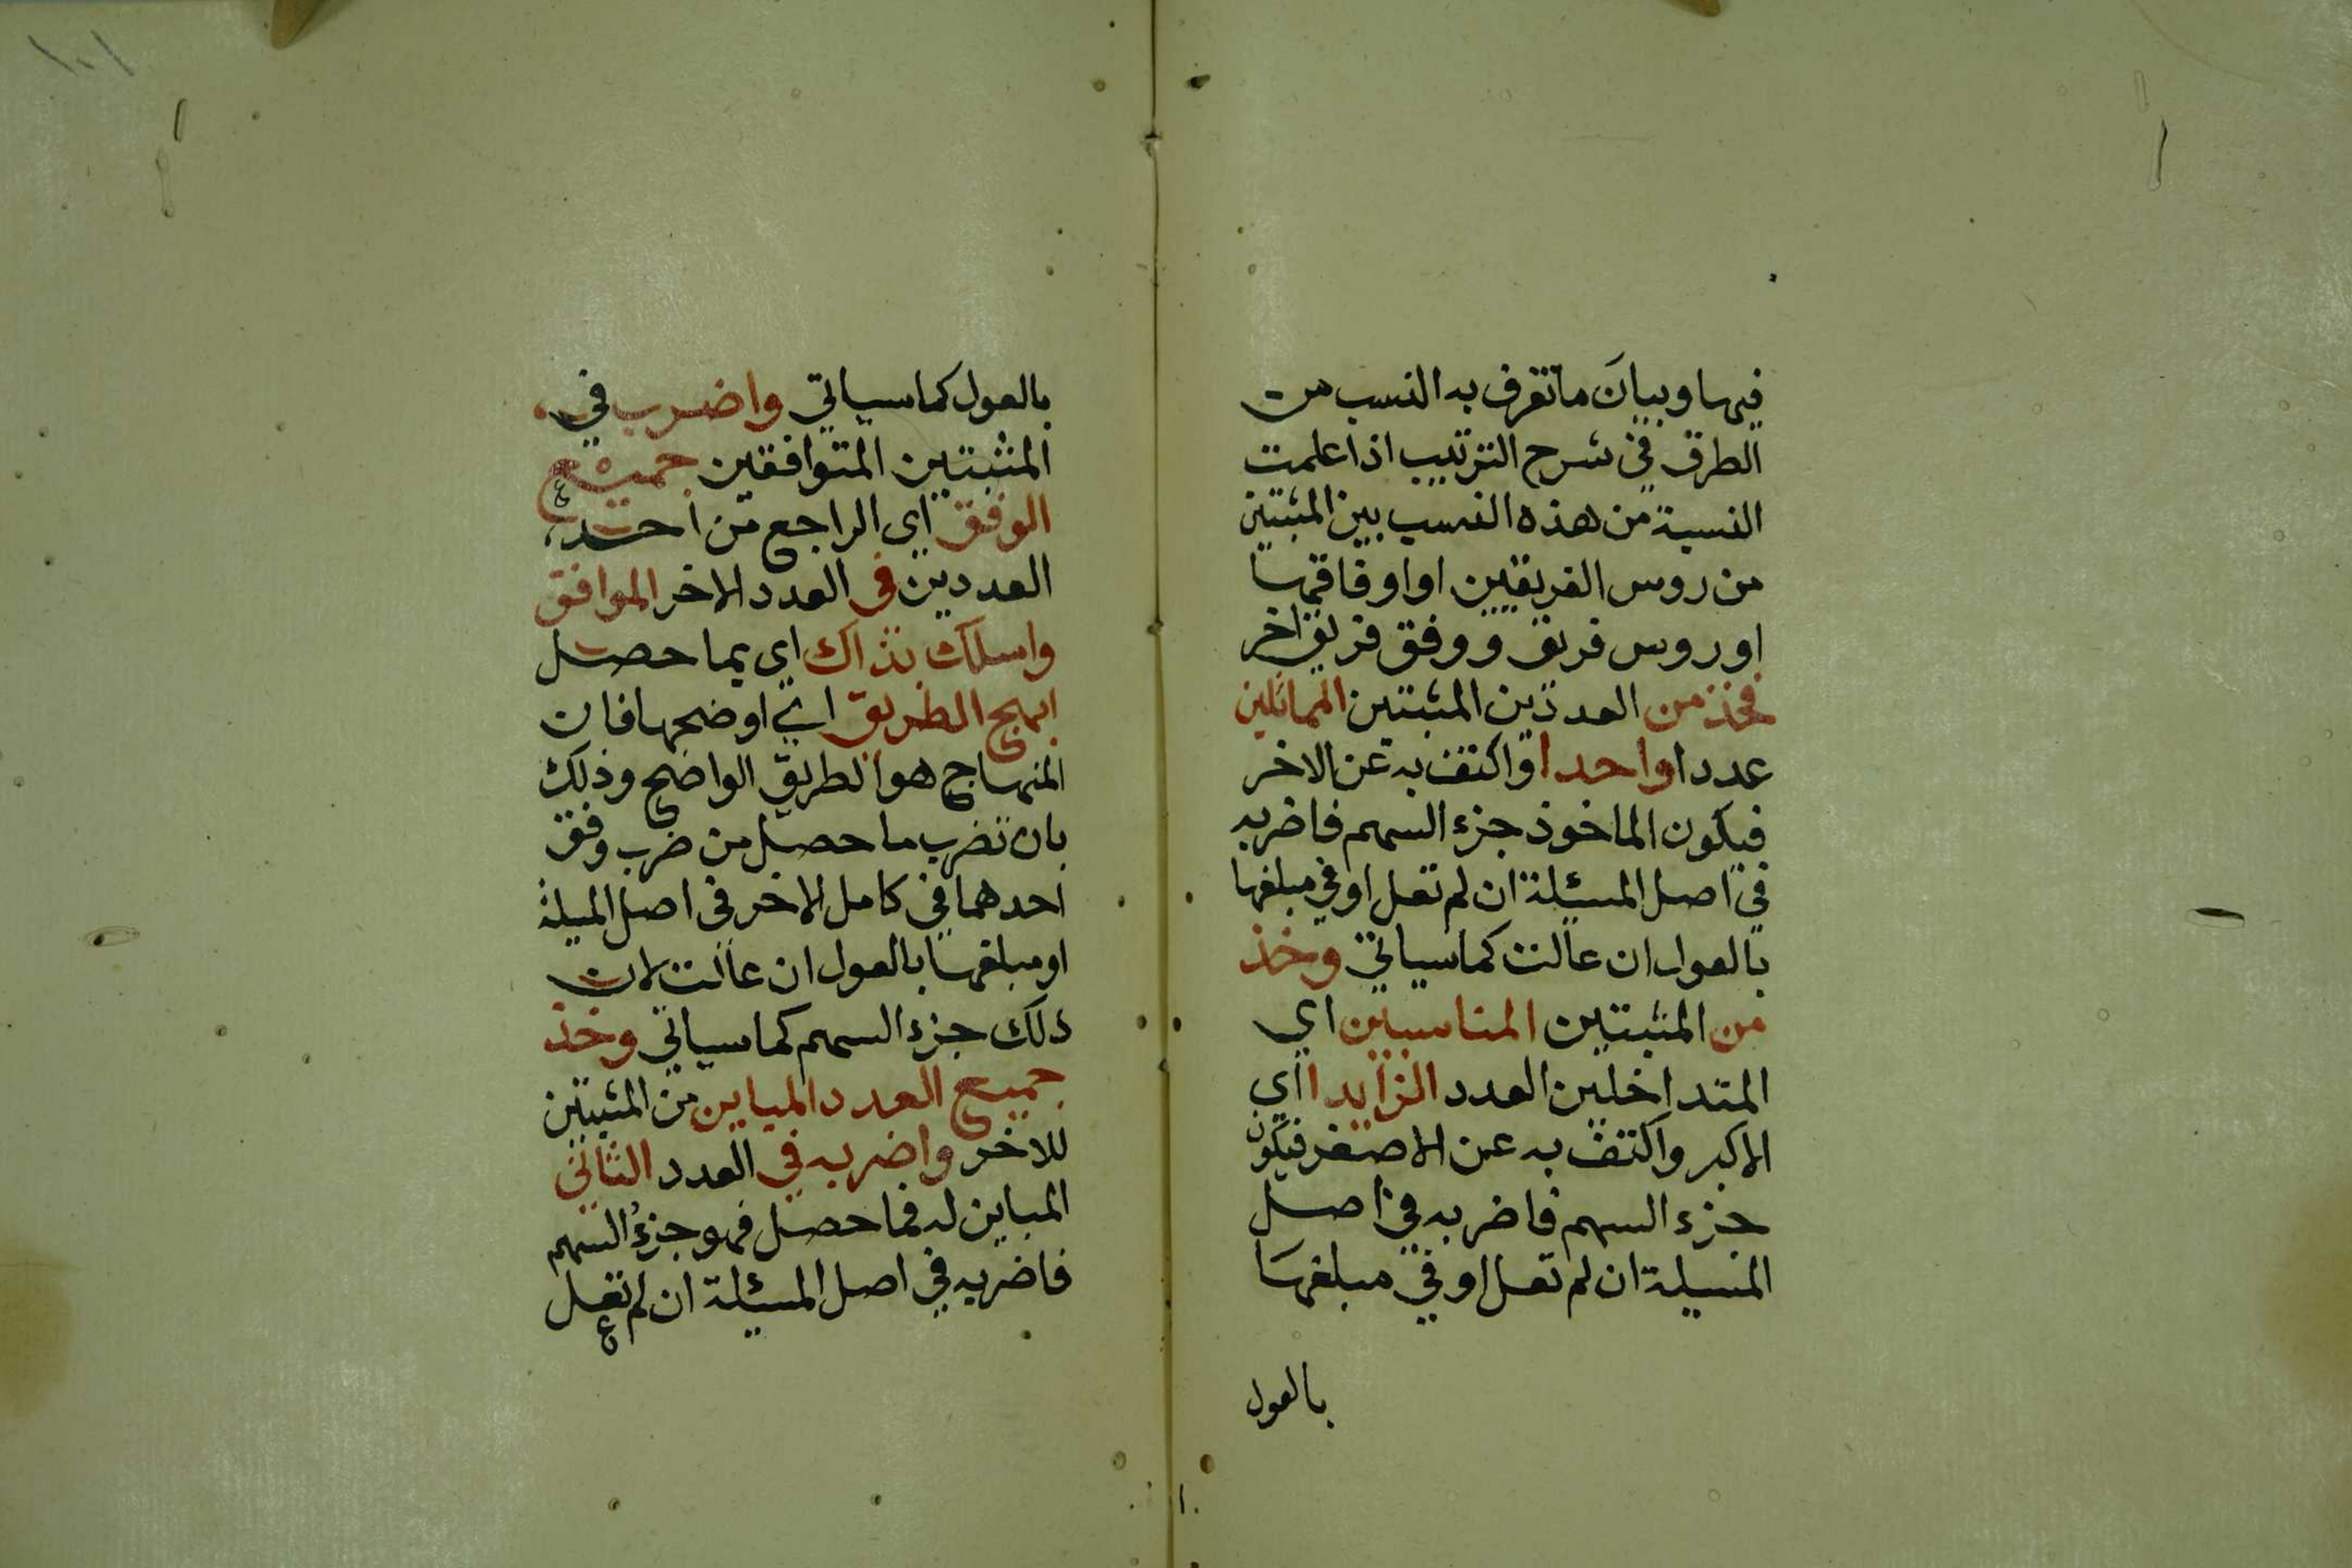 فيها وبيان ما تعرف به النسب من
الطرق في شرح الترتيب اذا علمت
النسبة من هذه النسب بين المثبتين
من روس الفريقين او اوفاقهما
او روس فريق ووفق فريق اخر
فخذ من العددين المثبتين المماثلين
عددا واحدا واكتف به عن الاخر
فيكون الماخوذ جزء السهم فاضربه
في اصل المسئلة ان لم تعل او في مبلغها
بالعول ان عالت كما سياتي وخذ
من المثبتين المناسبين اي
المتداخلين العدد الزايدا اي
الاكبر واكتف به عن الاصغر فيكون
جزء السهم فاضربه في اصل
المسيلة ان لم تعل او في مبلغها
بالعول
١٠١
بالعول كما سياتي واضرب في
المثبتين المتوافقين جميع
الوفق اي الراجع من احد
العددين في العدد الاخر الموافق
واسلك بذاك اي بما حصل
انهج الطريق اي اوضحها فان
المنهاج هو الطريق الواضح وذلك
بان تضرب ما حصل من ضرب وفق
احدهما في كامل الاخر في اصل المسيلة
او مبلغها بالعول ان عالت لان
ذلك جزء السهم كما سياتي وخذ
جميع العدد المباين من المثبتين
للاخر واضربه في العدد الثاني
المباين له فما حصل فهو جزء السهم
فاضربه في اصل المسئلة ان لم تعل